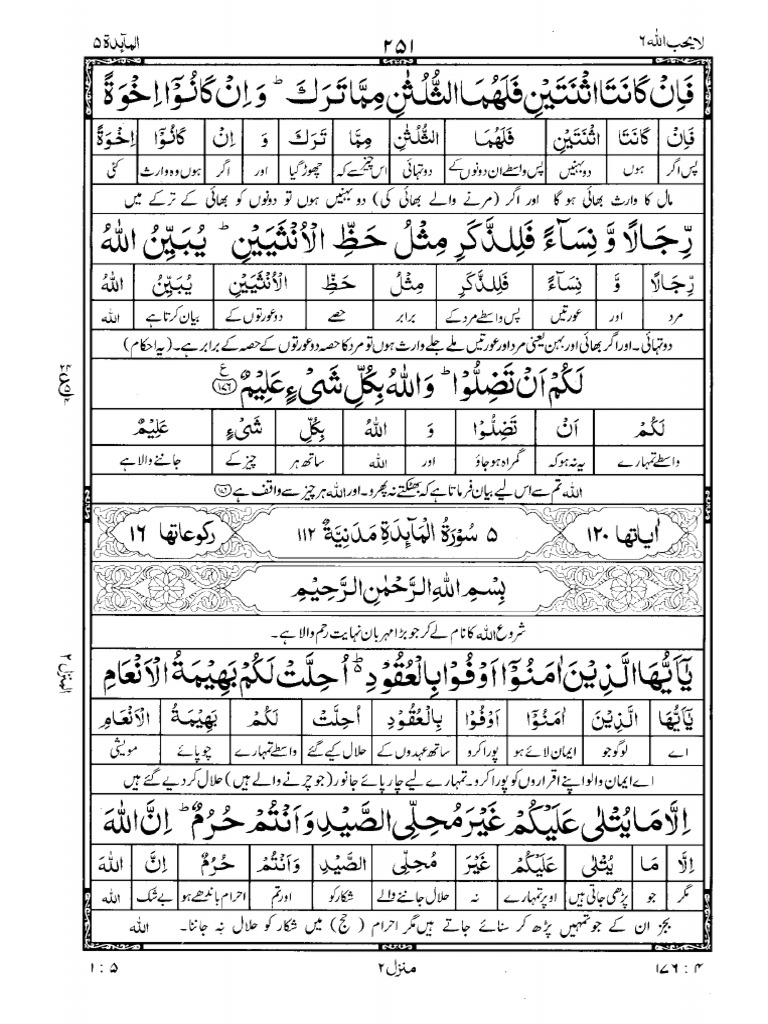 لا یحب الله ۶ ۲۵۱ المآىِٕدة ۵
فَاِنْ كَانَتَا اثْنَتَيْنِ فَلَهُمَا الثُّلُثٰنِ مِمَّا تَرَكَ ؕ وَاِنْ كَانُوْۤا اِخْوَةً
فَاِنْ كَانَتَا اثْنَتَيْنِ فَلَهُمَا الثُّلُثٰنِ مِمَّا تَرَكَ وَ اِنْ كَانُوْۤا اِخْوَةً
پس اگر ہوں دو بہنیں پس واسطے ان دونوں کے دو تہائی اس چیز سے کہ چھوڑ گیا اور اگر ہوں وہ وارث کئی
مال کا وارث بھائی ہو گا اور اگر (مرنے والے بھائی کی) دو بہنیں ہوں تو دونوں کو بھائی کے ترکے میں
رِّجَالًا وَّ نِسَآءً فَلِلذَّكَرِ مِثْلُ حَظِّ الْاُنْثَيَيْنِ ؕ يُبَيِّنُ اللّٰهُ
رِّجَالًا وَّ نِسَآءً فَلِلذَّكَرِ مِثْلُ حَظِّ الْاُنْثَيَيْنِ يُبَيِّنُ اللّٰهُ
مرد اور عورتیں پس واسطے مرد کے برابر حصے دو عورتوں کے بیان کرتا ہے اللہ
دو تہائی۔ اور اگر بھائی اور بہن یعنی مرد اور عورتیں ملے جلے وارث ہوں تو مرد کا حصہ دو عورتوں کے حصہ کے برابر ہے۔ (یہ احکام)
لَكُمْ اَنْ تَضِلُّوْا ؕ وَاللّٰهُ بِكُلِّ شَیْءٍ عَلِيْمٌ ﴿۱۷۶﴾ ع
لَكُمْ اَنْ تَضِلُّوْا وَ اللّٰهُ بِكُلِّ شَیْءٍ عَلِيْمٌ
واسطے تمہارے یہ نہ ہو کہ گمراہ ہو جاؤ اور اللہ ساتھ ہر چیز کے جاننے والا ہے
اللہ تم سے اس لیے بیان فرماتا ہے کہ بھٹکتے نہ پھرو۔ اور اللہ ہر چیز سے واقف ہے (۱۷۶)
اٰیاتھا ۱۲۰ ۵ سُوْرَةُ الْمَآىِٕدَةِ مَدَنِيَّةٌ ۱۱۲ رکوعاتھا ۱۶
بِسْمِ اللّٰهِ الرَّحْمٰنِ الرَّحِيْمِ
شروع اللہ کا نام لے کر جو بڑا مہربان نہایت رحم والا ہے۔
يٰۤاَيُّهَا الَّذِيْنَ اٰمَنُوْۤا اَوْفُوْا بِالْعُقُوْدِ ؕ اُحِلَّتْ لَكُمْ بَهِيْمَةُ الْاَنْعَامِ
يٰۤاَيُّهَا الَّذِيْنَ اٰمَنُوْۤا اَوْفُوْا بِالْعُقُوْدِ اُحِلَّتْ لَكُمْ بَهِيْمَةُ الْاَنْعَامِ
اے لوگو جو ایمان لائے ہو پورا کرو ساتھ عہدوں کے حلال کیے گئے واسطے تمہارے چوپائے مویشی
اے ایمان والو اپنے اقراروں کو پورا کرو۔ تمہارے لیے چار پائے جانور (جو چرنے والے ہیں) حلال کر دیے گئے ہیں
اِلَّا مَا يُتْلٰى عَلَيْكُمْ غَيْرَ مُحِلِّى الصَّيْدِ وَاَنْتُمْ حُرُمٌ ؕ اِنَّ اللّٰهَ
اِلَّا مَا يُتْلٰى عَلَيْكُمْ غَيْرَ مُحِلِّى الصَّيْدِ وَاَنْتُمْ حُرُمٌ اِنَّ اللّٰهَ
مگر جو پڑھی جاتی ہیں اوپر تمہارے نہ حلال جاننے والے شکار کو اور تم احرام باندھے ہو بے شک اللہ
بجز ان کے جو تمہیں پڑھ کر سنائے جاتے ہیں مگر احرام (حج) میں شکار کو حلال نہ جاننا۔ اللہ
المنزل ۲
۴ : ۱۷۶ منزل ۲ ۵ : ۱